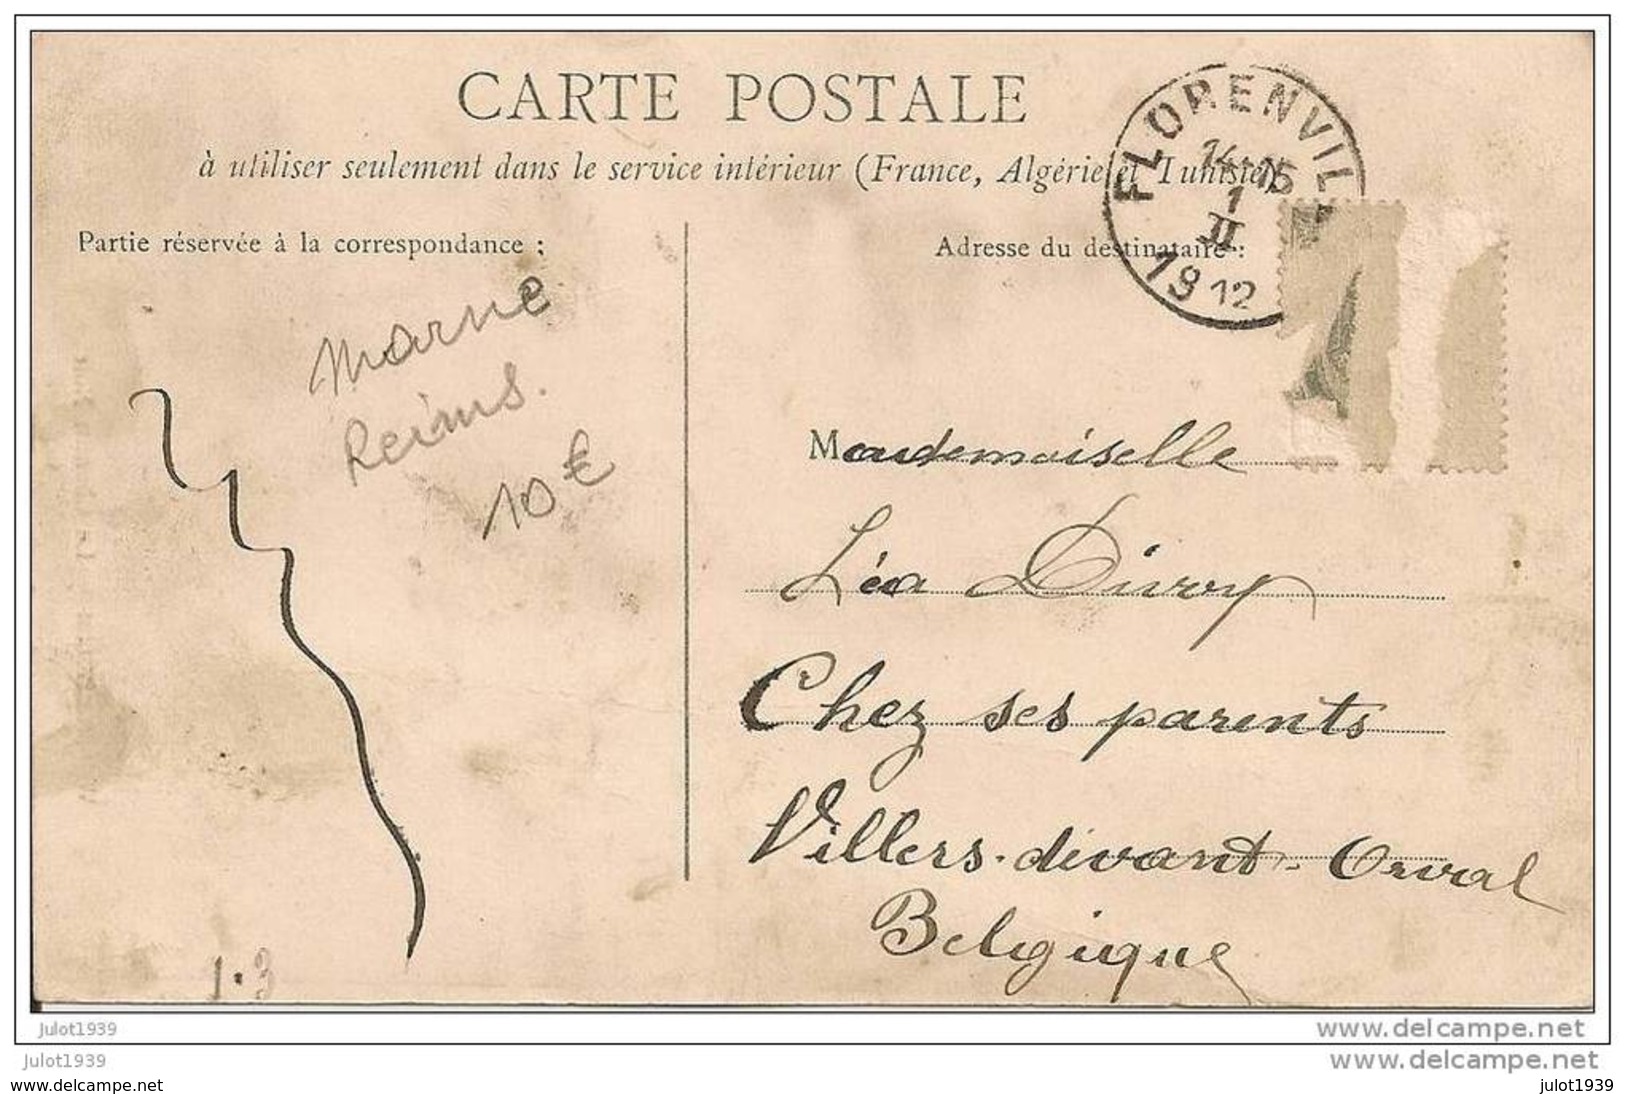 CARTE POSTALE
à utiliser seulement dans le service intérieur (France, Algérie et Tunisie).
FLORENVIL
14-15
1
II
1912
Partie réservée à la correspondance :
Adresse du destinataire :
Marne
Reims.
10 €
Mademoiselle
Léa Divoy
Chez ses parents
Villers-devant-Orval
Belgique
1·3
julot1939
www.delcampe.net
julot1939
www.delcampe.net
www.delcampe.net
julot1939